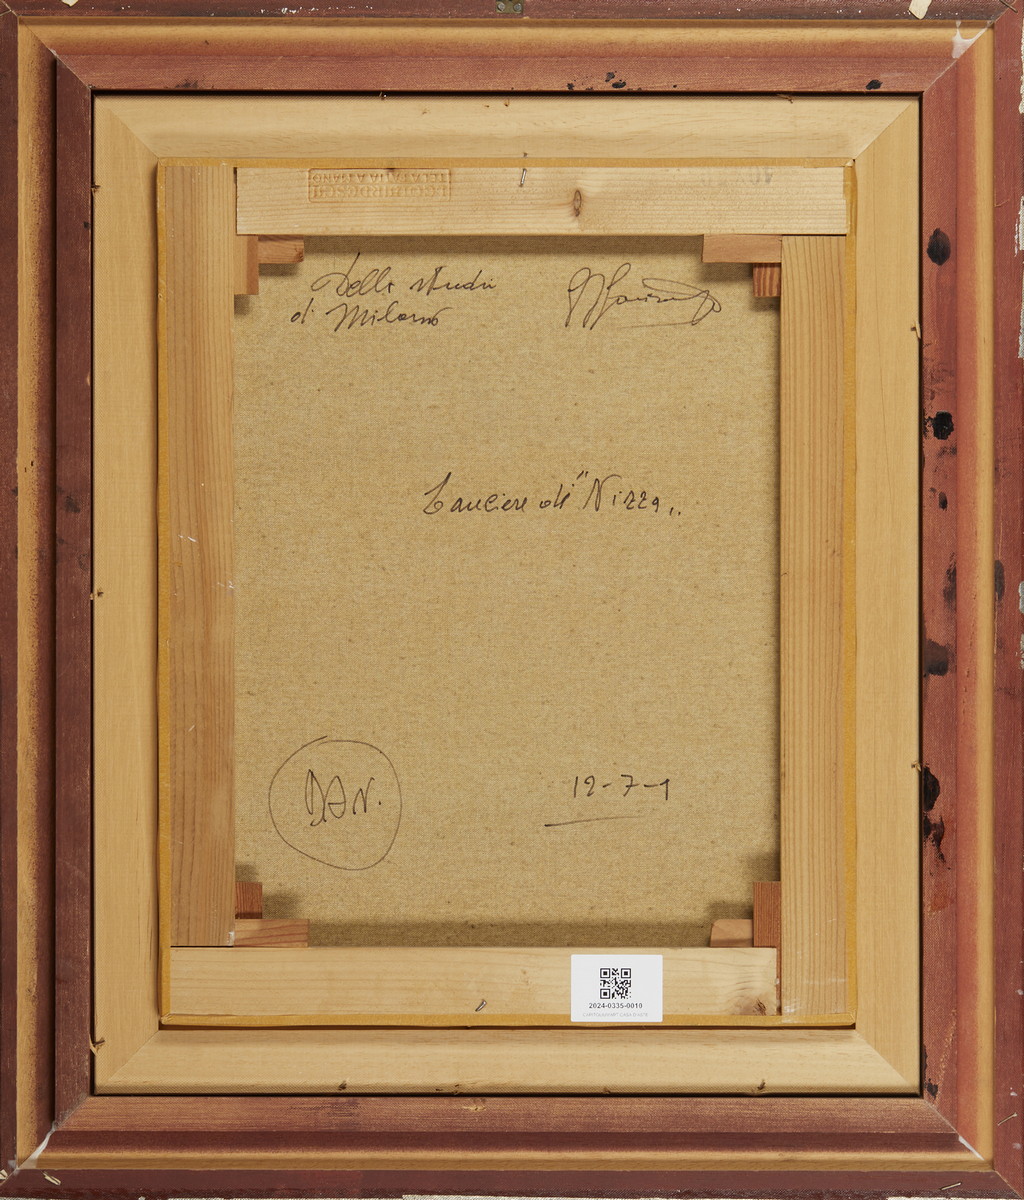 Dello studio
di Milano
Lanciere di "Nizza"
D A N.
12-7-1
2024-0335-0010